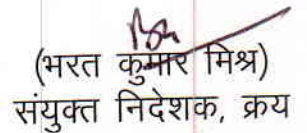 (भरत कुमार मिश्र)
संयुक्त निदेशक, क्रय